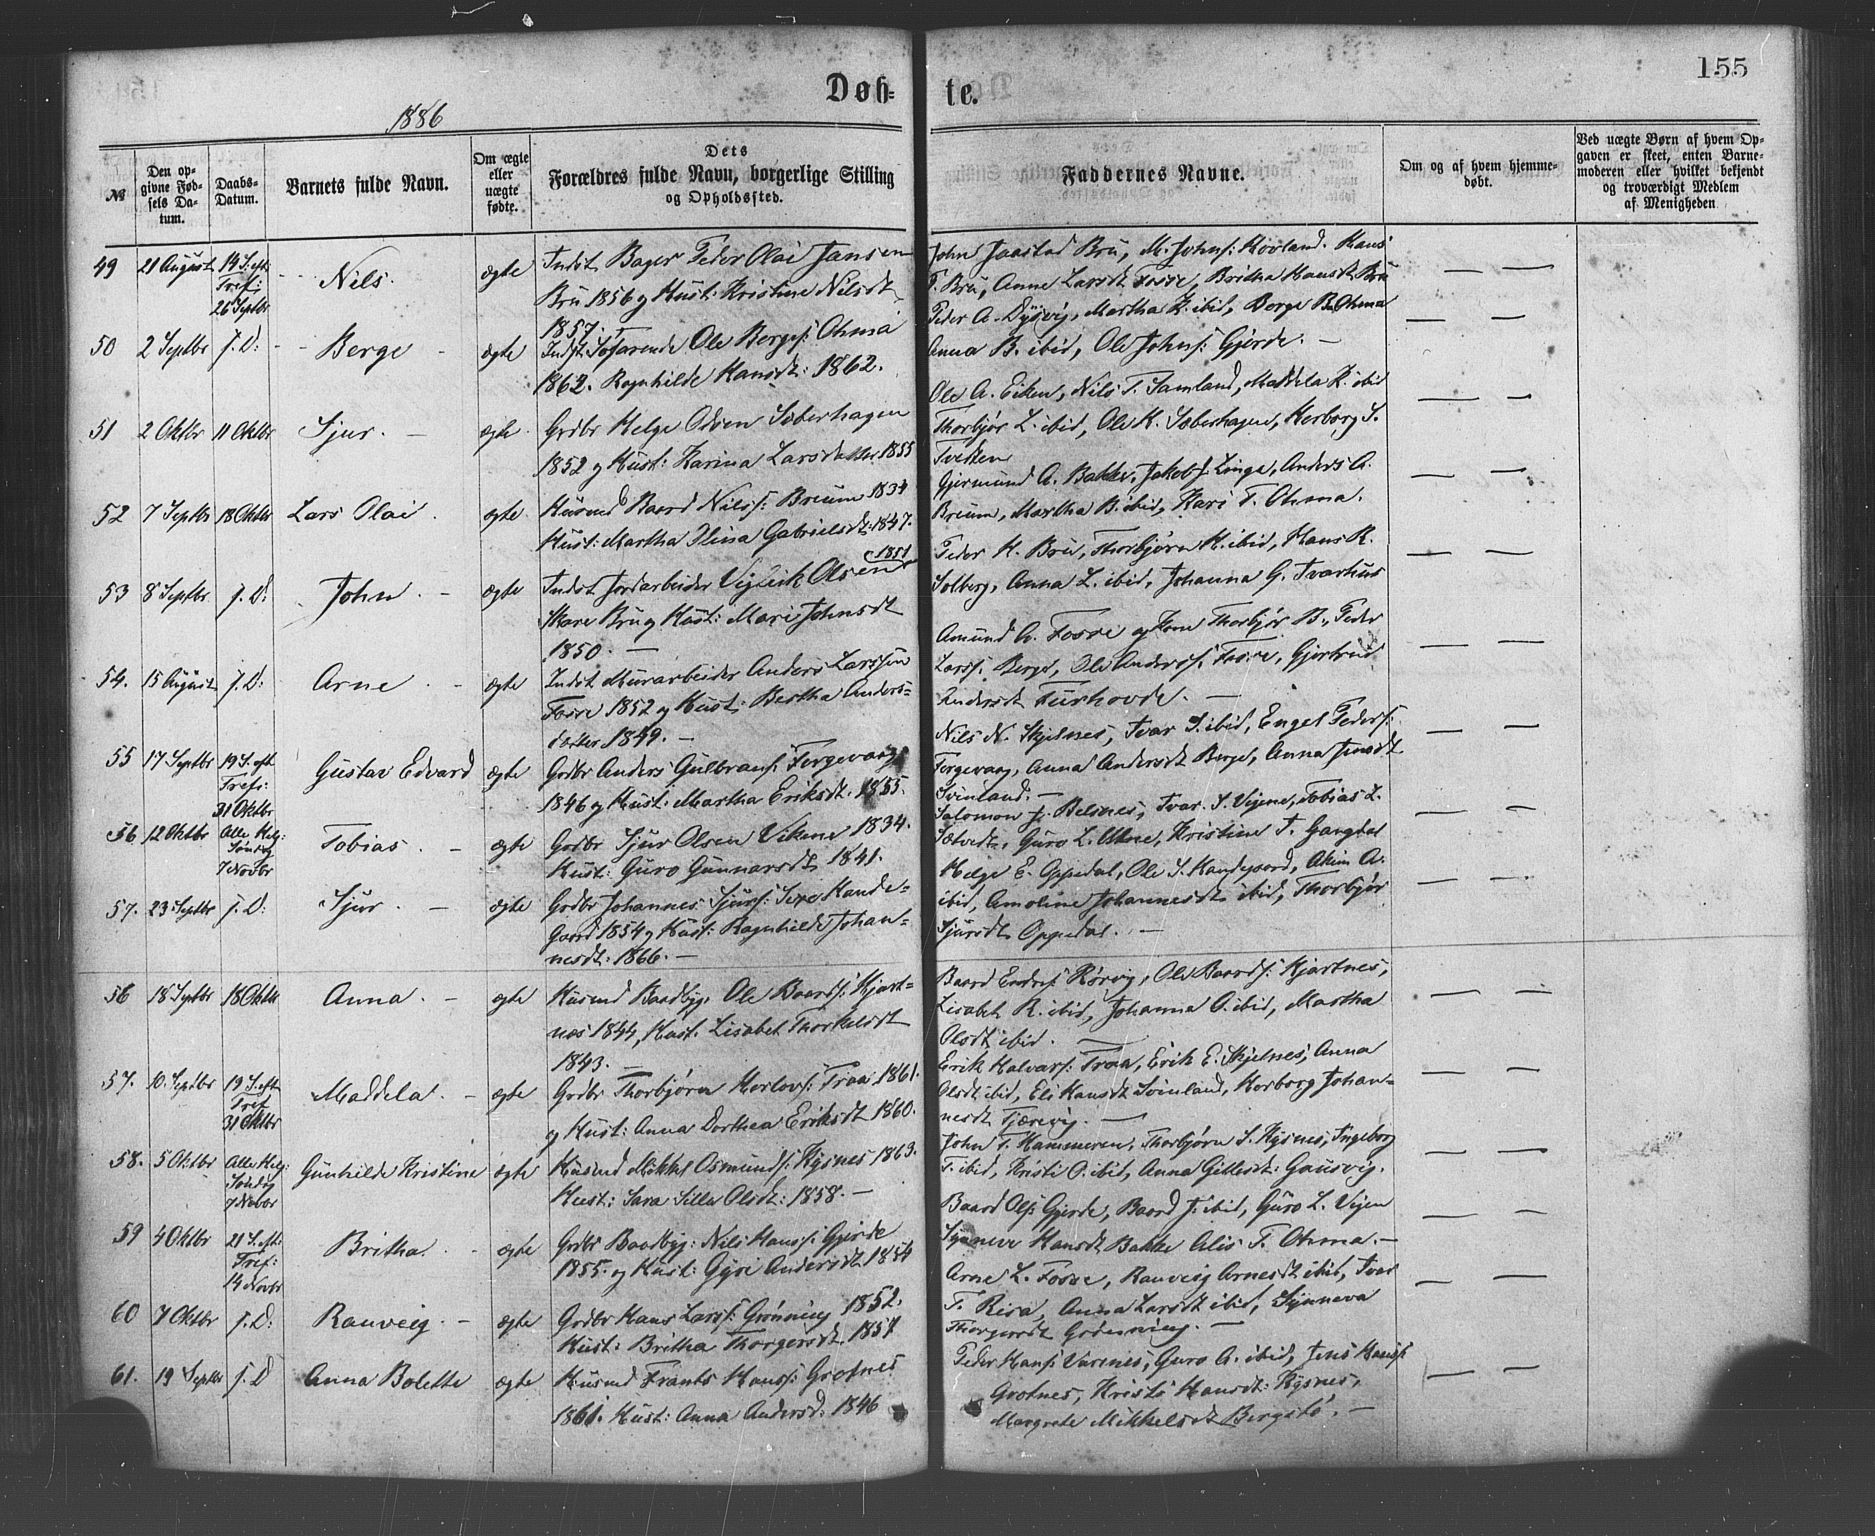 155
Døb=
te.
1886
№
Den op-
givne Fød-
sels Da-
tum.
Daabs-
Datum.
Barnets fulde Navn.
Om ægte
eller
uægte
fødte.
Dets
Forældres fulde Navn, borgerlige Stilling
og Opholdssted.
Faddernes Navne.
Om og af hvem hjemme-
døbt.
Ved uægte Børn af hvem Op-
gaven er skeet, enten Barne-
moderen eller hvilket bekjendt
og troværdigt Medlem
af Menigheden
49 21 August 14 S. eft. Tref: 26 Septbr Nils. ægte
Indst Bager Peder Olai Jansen
Bru 1856 og Hust: Kristine Nilsdt
1857.
John Jaastad Bru, M. Johns: Hovland. Hans
T. Bru, Anne Larsdt Fosse, Britha Hansdt Bru
50 2 Septbr J. D: Berge ægte
Indst Søfarende Ole Berges: Ohma
1862. Ragnhilde Hansdt: 1862.
Peder A. Dysvig, Martha K. ibid, Berge B. Ohma
Anna B. ibid, Ole Johns: Gjerde. —
51 2 Oktbr 11 Oktbr Sjur. — ægte
Grdbr Helge Odsen Soberhagen
1852 og Hust: Karina Larsdatter 1855
Ole A. Eiken, Nils T. Samland, Maddela K. ibid
Thorbjør L. ibid, Ole K. Soberhagen, Herborg S.
Tveiten
52 7 Septbr 18 Oktbr Lars Olai. ægte
Husmd Baard Nilss: Breum 1834
Hust: Martha Elina Gabrielsdt: 1847.
Gjermund A. Bakke, Jakob J. Linga, Anders A.
Breum, Martha B. ibid, Kari T. Ohma.
53 8 Septbr J. D: John. — ægte
Indst Jordarbeider Vigleik Olsen 1851
Skare Bru og Hust: Mari Johnsdt
1850. —
Peder H. Bru, Thorbjørn H. ibid, Hans K.
Solberg, Anna L. ibid, Johanna G. Tvarhus
54. 15 August J. D: Arne ægte
Indst Murarbeider Anders Larssen
Fosse 1852 og Hust: Bertha Anders=
datter 1849. —
Amund A. Fosse og Kone Thorbjør B., Peder
Larss: Berge, Ole Anderss: Fosse, Gjertrud
Andersdt Furhovde. —
55 17 Septbr 19 S. eft Tref: 31 Oktbr Gustav Edvard ægte
Grdbr Anders Gulbrans: Fergevaag
1846 og Hust: Martha Eriksdt. 1855.
Nils N. Skjelnes, Ivar S. ibid, Engel Peders:
Fergevaag, Anna Andersdt Berge, Anna Jensdt
Svinland. —
56 12 Oktbr Alle Helg: Søndag 7 Novbr Tobias. — ægte
Grdbr Sjur Olsen Vikene 1834.
Hust: Guro Gunnarsdt 1841.
Salomon J. Belsnes, Ivar S. Vijene, Tobias L.
Sætvedt, Guro L. Utne, Kristine T. Gangdal
57. 23 Septbr J. D: Sjur — ægte
Grdbr Johannes Sjurs: Sexe Kande=
gaard 1854 og Hust: Ragnhilde Johan=
nesdt: 1866. —
Helge E. Oppedal, Ole S. Kandegaard, Akim A.
ibid, Amoline Johannesdt ibid, Thorbjør
Sjursdt Oppedal. —
56 18 Septbr 18 Oktbr Anna. — ægte
Husmd Baadbyg: Ole Baards: Kjart=
næs 1844, Hust: Lisabet Thorkelsdt
1843. —
Baard Endres: Rørvig, Ole Baards: Kjartnes,
Lisabet R. ibid, Johanna O. ibid, Martha
Olsdt ibid. —
57. 10 Septbr 19 S. eft Tref 31 Oktbr Maddela. — ægte
Grdbr Thorbjørn Herlovs: Traa 1861.
og Hust: Anna Dorthea Eriksdt 1860.
Erik Halvars: Traa, Erik E. Skjelnes, Anna
Olsdt ibid, Eli Hansdt Svinland, Herborg Johan=
nesdt Tjærevig. —
58. 5 Oktbr Alle Helg: Søndag 7 Novbr Gunhilde Kristine ægte
Husmd Mikkel Osmunds: Rysnes 1863.
Hust: Sara Silla Olsdt: 1858. —
John T. Hammeren, Thorbjørn S. Rysnes, Ingeborg
T. ibid, Kristi O. ibid, Anna Gillesdt: Gausvig.
59 4 Oktbr 21 S. eft: Tref: 14 Novbr Britha. — ægte
Grdbr Baadbyg: Nils Hanss: Gjerde
1855. og Hust: Gyri Andersdt 1854
Baard Ols: Gjerde, Baard J. ibid, Guro L. Vijen
Synneve Hansdt Bakke Alis T. Ohma. —
60 7 Oktbr J. D: Ranveig — ægte
Grdbr Hans Larss: Grønning 1852.
Hust: Britha Thorgersdt 1857
Arne L. Fosse, Ranveig Arnesdt ibid, Ivar
T. Risa, Anna Larsdt ibid, Synneva
Thorgersdt Grønning. —
61. 19 Septbr J. D Anna Bolette ægte
Husmd Frants Hanss: Grotnes
1861. Hust: Anna Andersd: 1846
Peder Hans: Varenes, Guro A. ibid, Jens Hanss:
Grotnes, Kristi Hansdt: Rysnes,
Margrete Mikkelsdt Bergstø. —